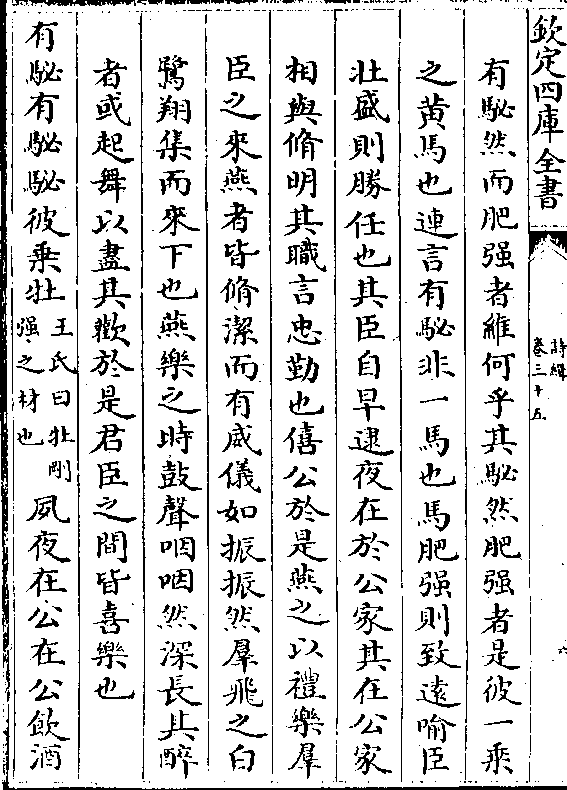 欽定四庫全書
詩緝
卷三十五
有駜然而肥强者維何乎其駜然肥强者是彼一乘
之黄馬也連言有駜非一馬也馬肥强則致遠喻臣
壯盛則勝任也其臣自早逮夜在於公家其在公家
相與脩明其職言忠勤也僖公於是燕之以禮樂羣
臣之來燕者皆脩潔而有威儀如振振然羣飛之白
鷺翔集而來下也燕樂之時鼓聲咽咽然深長其醉
者或起舞以盡其歡於是君臣之間皆喜樂也
有駜有駜駜彼乘牡王氏曰牡剛强之材也夙夜在公在公飲酒